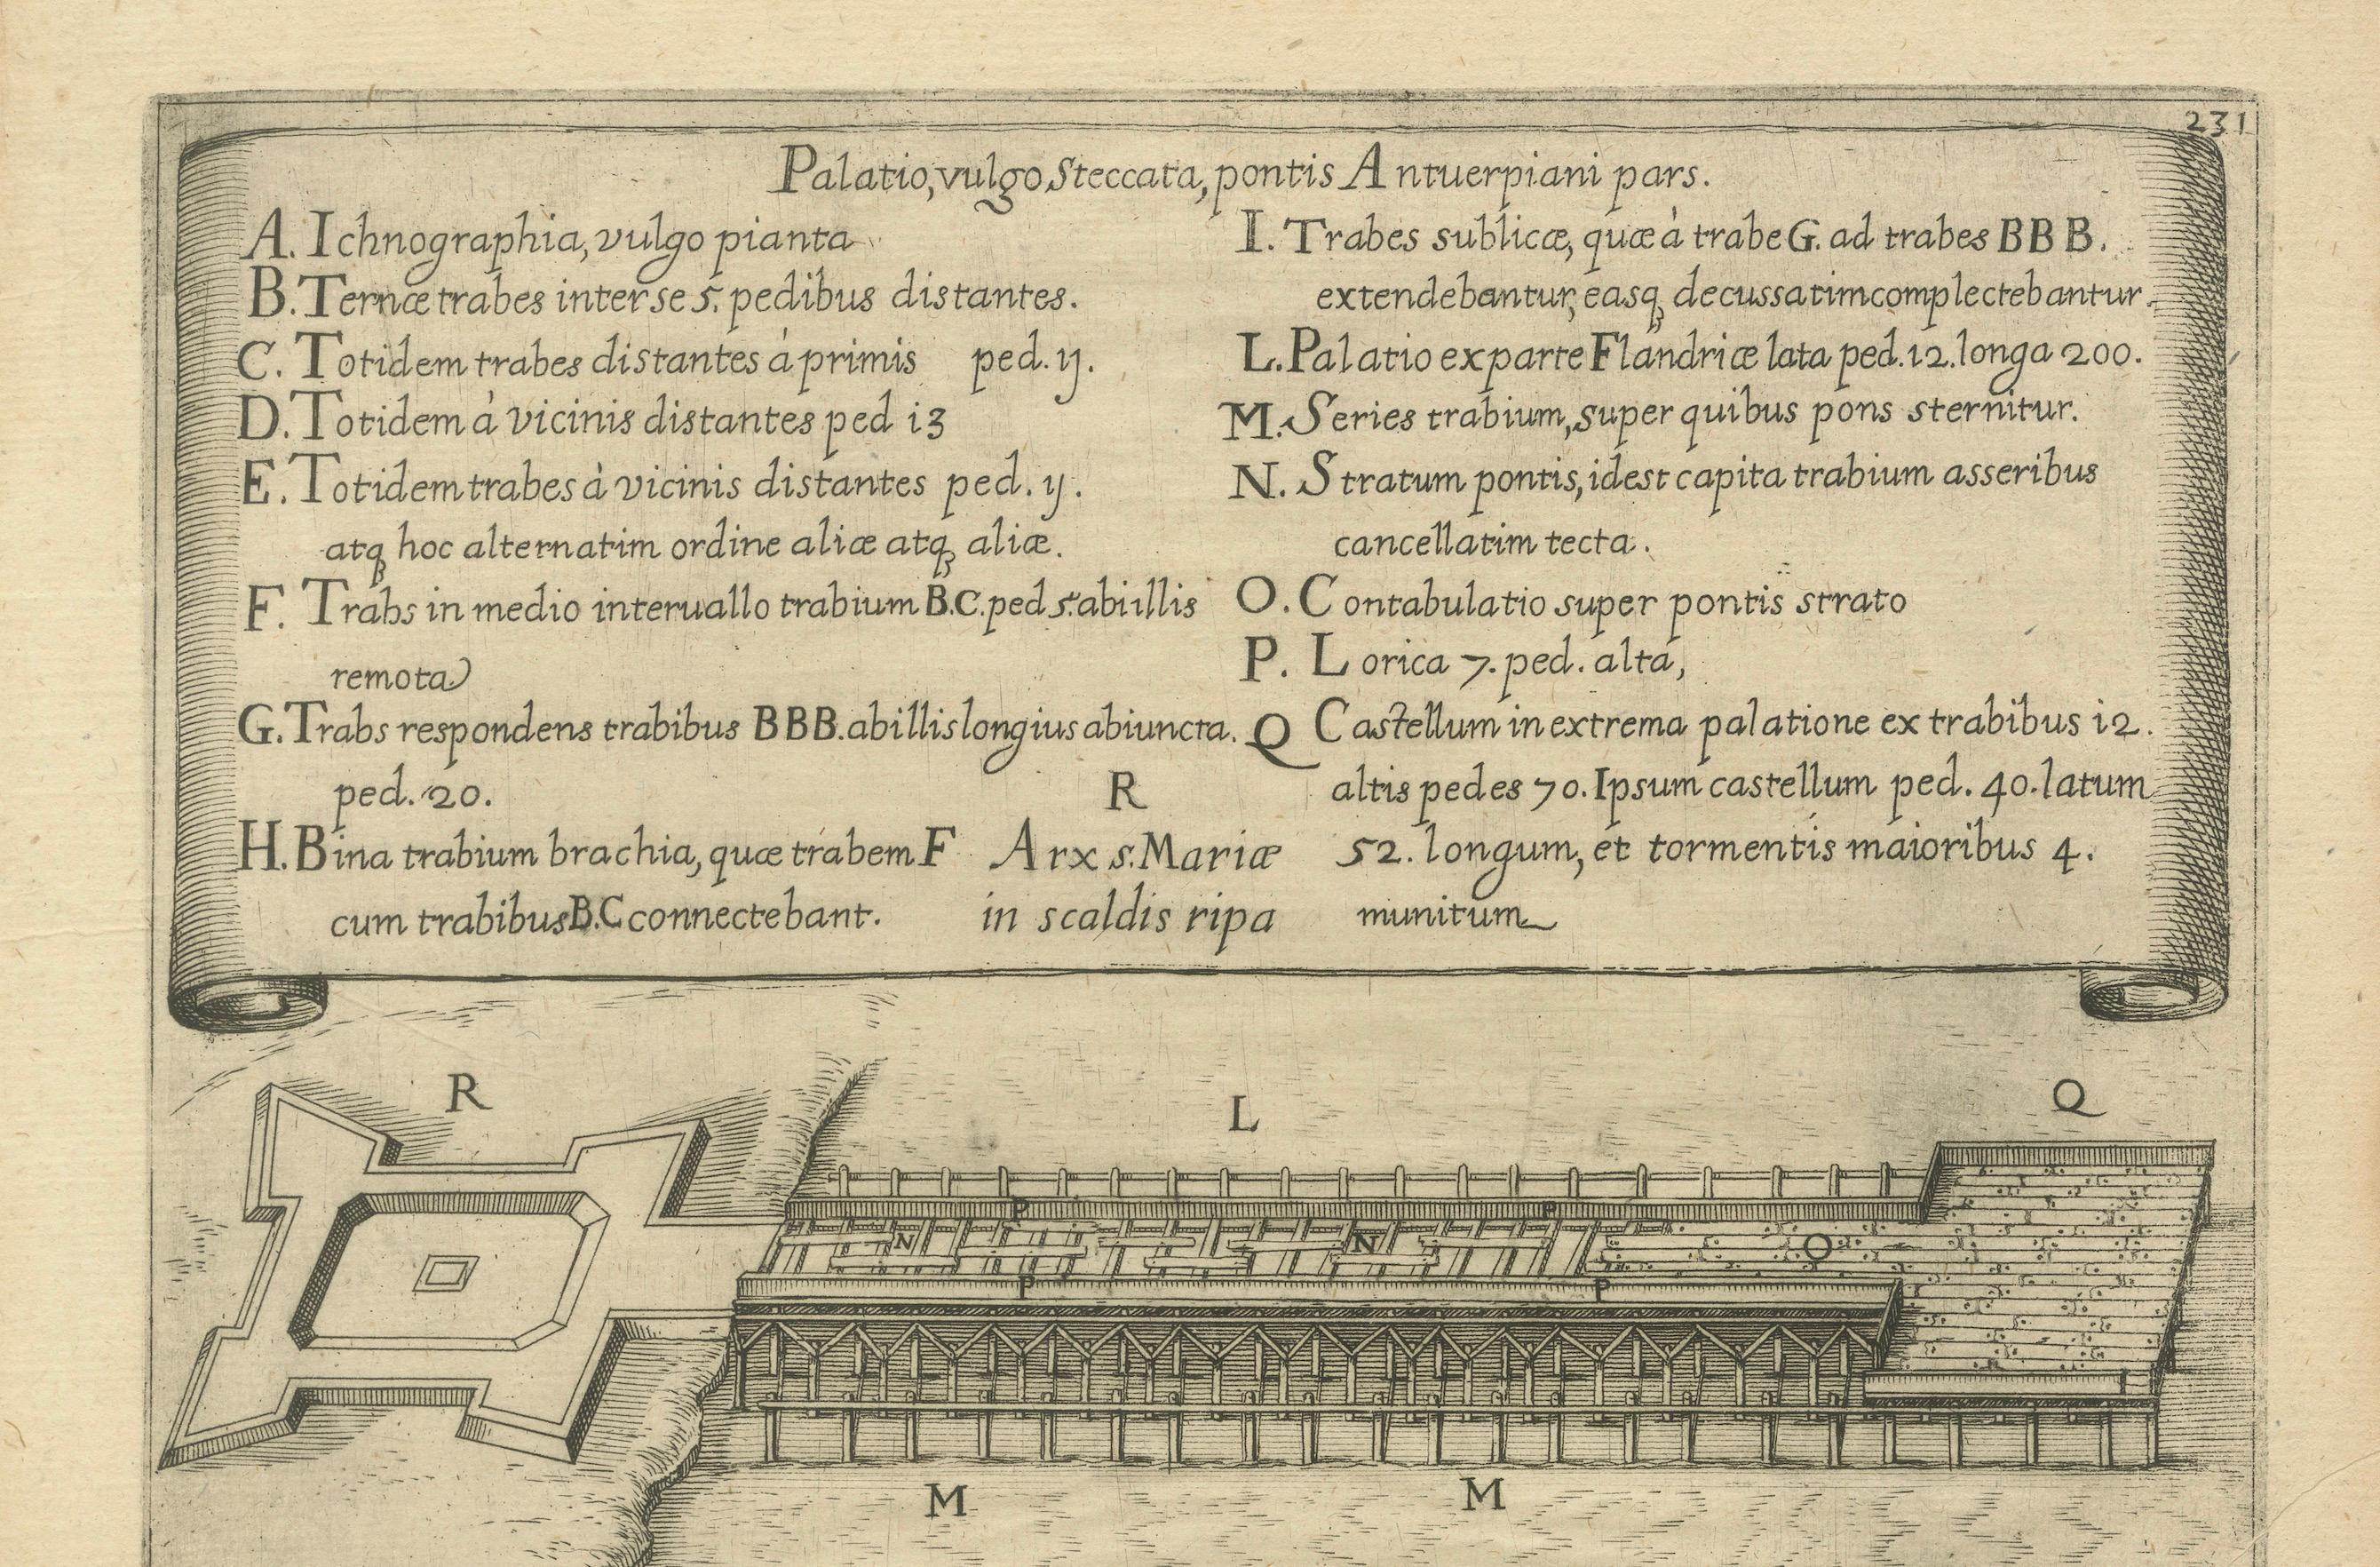 231
Palatio, vulgo Steccata, pontis Antuerpiani pars.
A. Ichnographia, vulgo pianta
B. Ternæ trabes inter se 5. pedibus distantes.
C. Totidem trabes distantes à primis ped. 11.
D. Totidem à vicinis distantes ped 13
E. Totidem trabes à vicinis distantes ped. 11.
atq hoc alternatim ordine aliæ atq aliæ.
F. Trabs in medio interuallo trabium B.C. ped 5. ab illis
remota
G. Trabs respondens trabibus BBB. ab illis longius abiuncta.
ped. 20.
H. Bina trabium brachia, quæ trabem F
cum trabibus B.C connectebant.
R
Arx s. Mariæ
in scaldis ripa
I. Trabes sublicæ, quæ à trabe G. ad trabes BBB.
extendebantur, easq decussatim complectebantur.
L. Palatio ex parte Flandriæ lata ped. 12. longa 200.
M. Series trabium, super quibus pons sternitur.
N. Stratum pontis, idest capita trabium asseribus
cancellatim tecta.
O. Contabulatio super pontis strato
P. Lorica 7. ped. alta,
Q Castellum in extrema palatione ex trabibus 12.
altis pedes 70. Ipsum castellum ped. 40. latum
52. longum, et tormentis maioribus 4.
munitum
R
L
Q
P
P
N
N
O
P
P
M
M